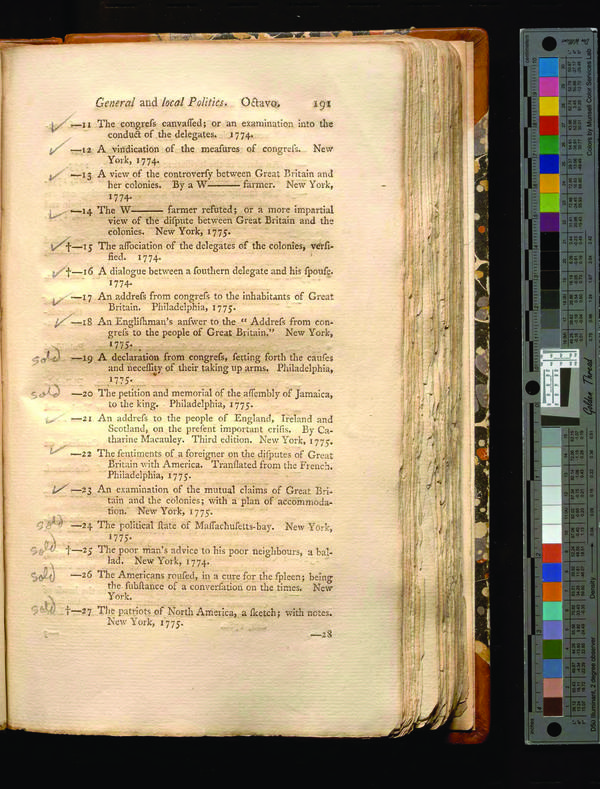 General and local Politics. Octavo. 191
✓ —11 The congreſs canvaſſed; or an examination into the
conduct of the delegates. 1774.
✓ —12 A vindication of the meaſures of congreſs. New
York, 1774.
✓ —13 A view of the controverſy between Great Britain and
her colonies. By a W—— farmer. New York,
1774.
✓ —14 The W—— farmer refuted; or a more impartial
view of the diſpute between Great Britain and the
colonies. New York, 1775.
✓ †—15 The aſſociation of the delegates of the colonies, verſi-
fied. 1774.
✓ †—16 A dialogue between a ſouthern delegate and his ſpouſe.
1774.
✓ —17 An addreſs from congreſs to the inhabitants of Great
Britain. Philadelphia, 1775.
✓ —18 An Engliſhman's anſwer to the “ Addreſs from con-
greſs to the people of Great Britain.” New York,
1775.
sold —19 A declaration from congreſs, ſetting forth the cauſes
and neceſſity of their taking up arms. Philadelphia,
1775.
sold —20 The petition and memorial of the aſſembly of Jamaica,
to the king. Philadelphia, 1775.
✓ —21 An addreſs to the people of England, Ireland and
Scotland, on the preſent important criſis. By Ca-
tharine Macauley. Third edition. New York, 1775.
✓ —22 The ſentiments of a foreigner on the diſputes of Great
Britain with America. Tranſlated from the French.
Philadelphia, 1775.
✓ —23 An examination of the mutual claims of Great Bri-
tain and the colonies; with a plan of accommoda-
tion. New York, 1775.
sold —24 The political ſtate of Maſſachuſetts-bay. New York,
1775.
sold †—25 The poor man's advice to his poor neighbours, a bal-
lad. New York, 1774.
sold —26 The Americans rouſed, in a cure for the ſpleen; being
the ſubſtance of a converſation on the times. New
York.
sold †—27 The patriots of North America, a ſketch; with notes.
New York, 1775.
—28
Golden Thread
Colors by Munsell Color Services Lab
Density
D50 Illuminant, 2 degree observer